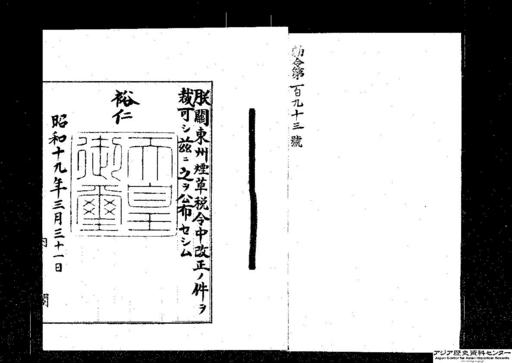 勅令第一百九十三號
朕關東州煙草税令中改正ノ件ヲ
裁可シ茲ニ之ヲ公布セシム
裕仁
天皇
御璽
昭和十九年三月三十一日
内閣
アジア歴史資料センター
Japan Center for Asian Historical Records